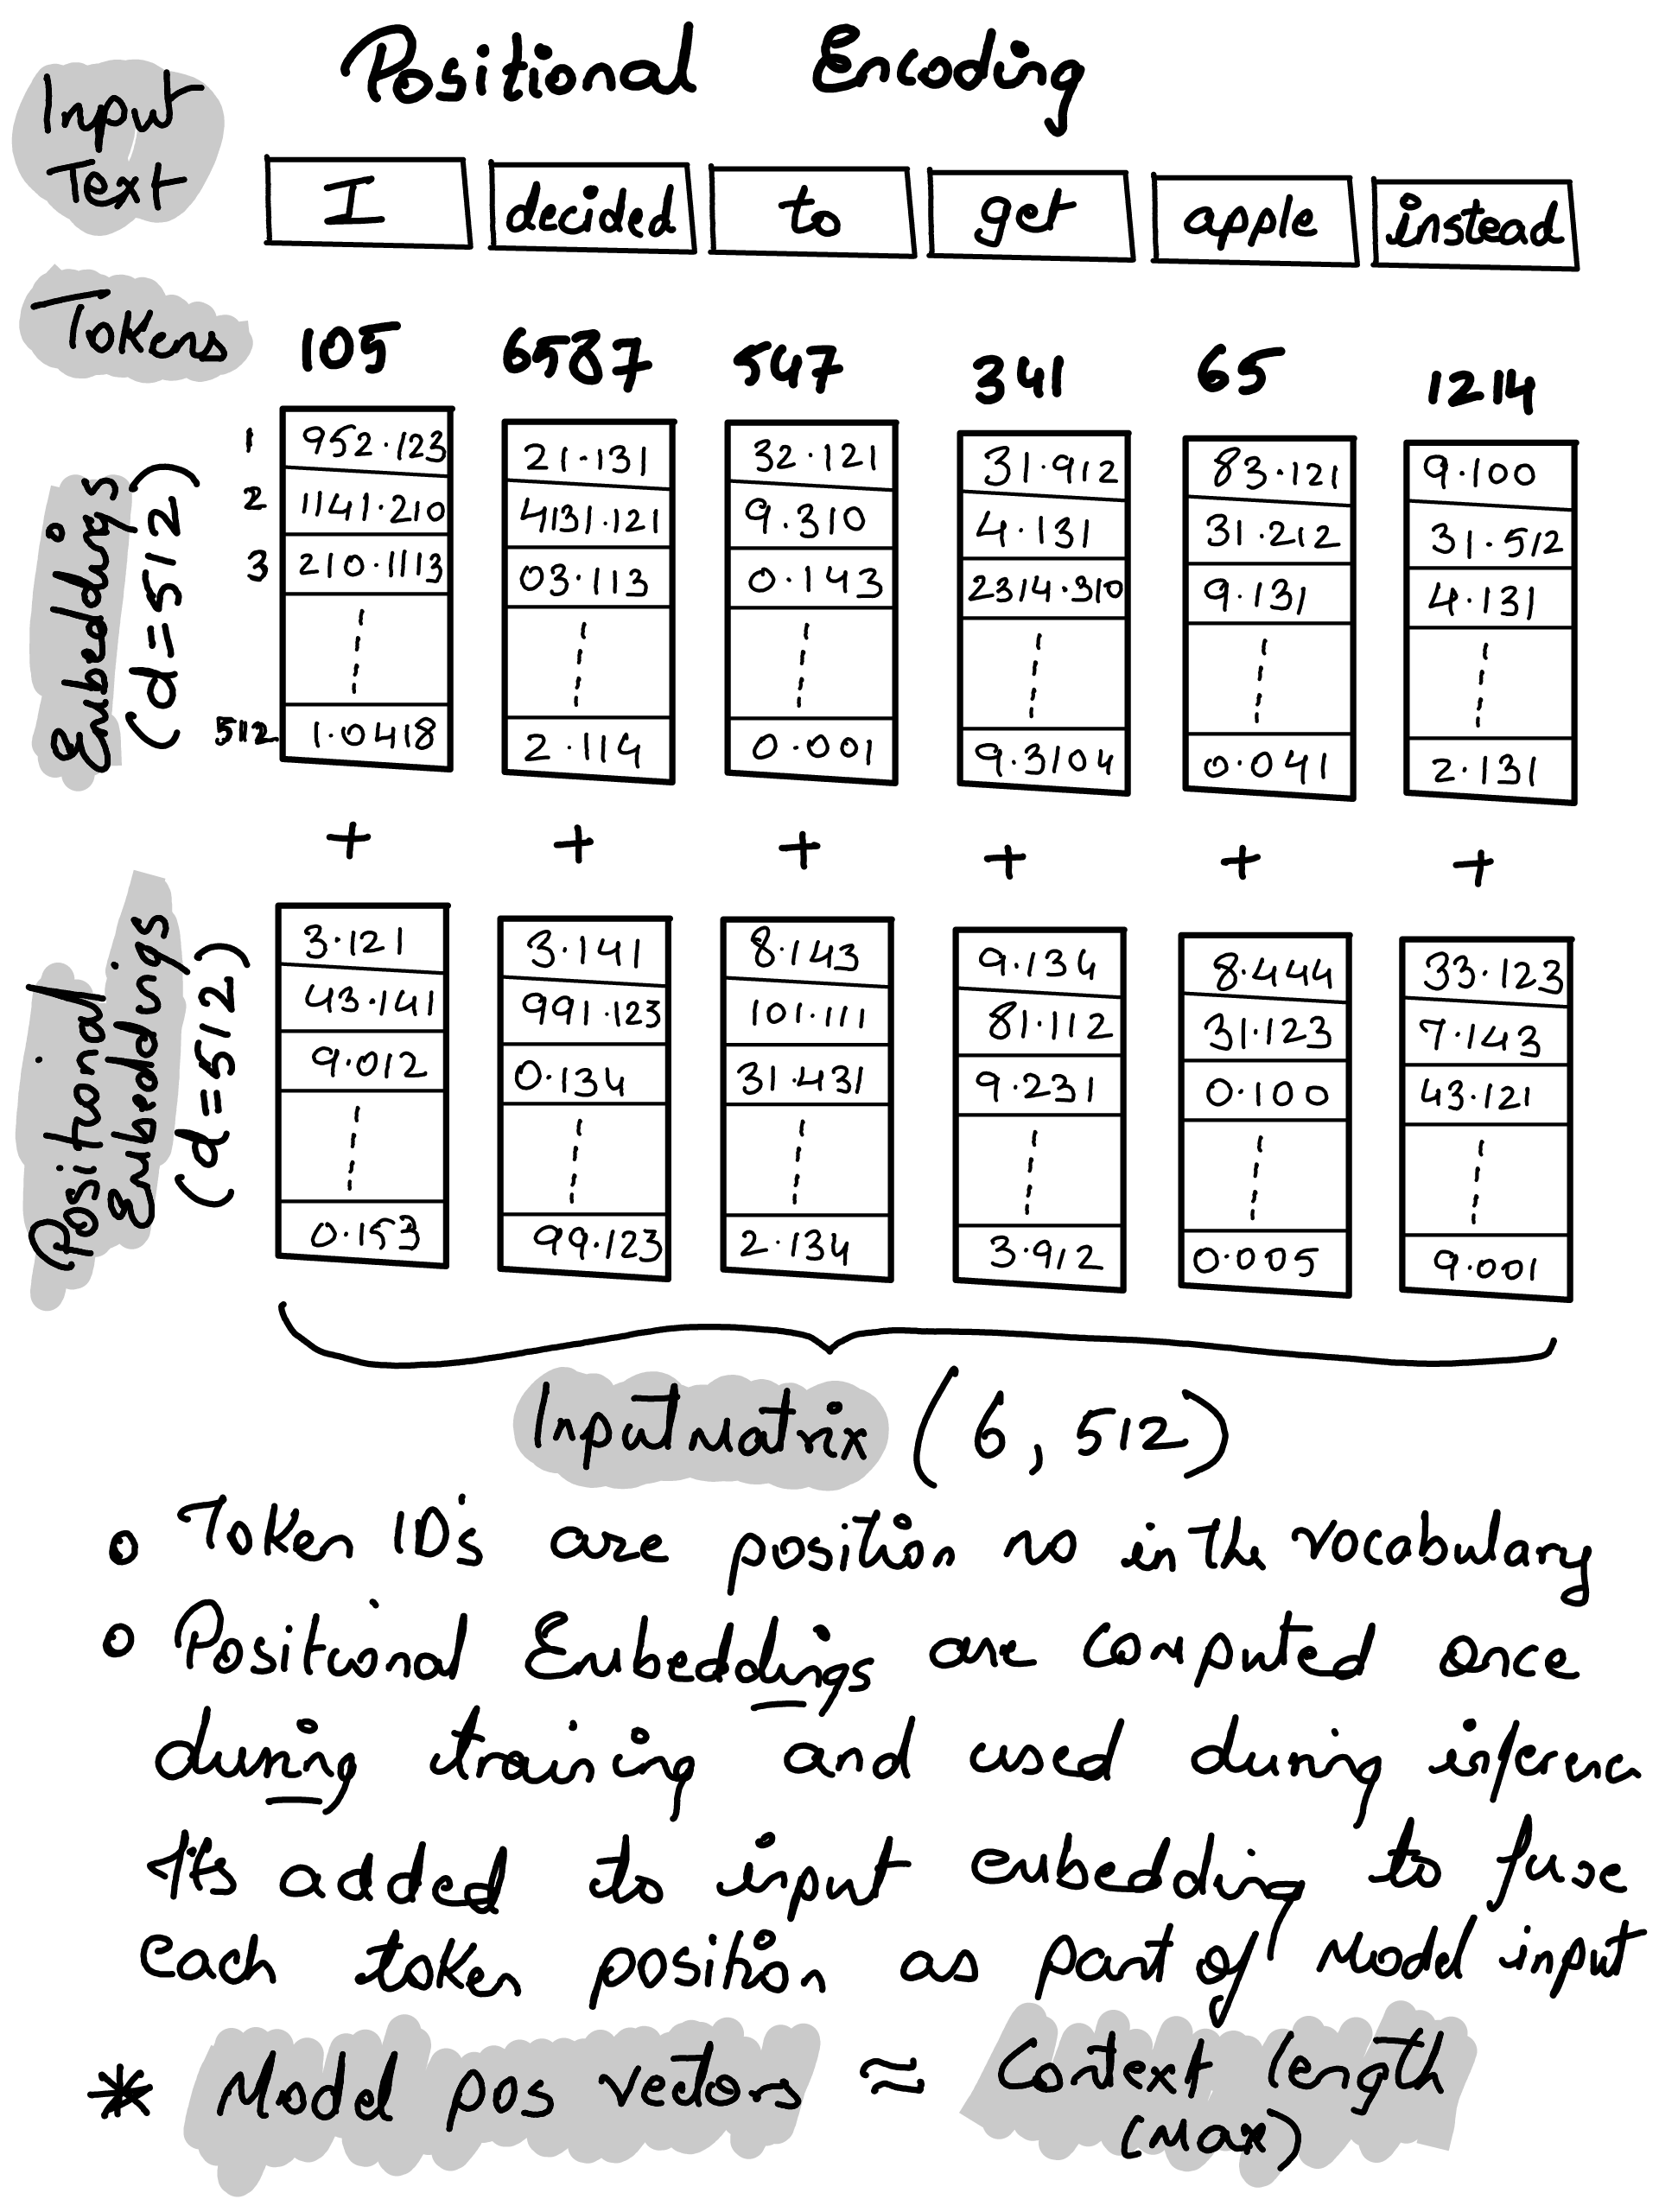 Positional Encoding
Input
Text
I decided to get apple instead
Tokens 105 6587 547 341 65 1214
Embeddings
(d=512)
1 952.123 21.131 32.121 31.912 83.121 9.100
2 1141.210 4131.121 9.310 4.131 31.212 31.512
3 210.1113 03.113 0.143 2314.310 9.131 4.131
512 1.0418 2.114 0.001 9.3104 0.041 2.131
+ + + + + +
Positional
Embeddings
(d=512)
3.121 3.141 8.143 9.134 8.444 33.123
43.141 991.123 101.111 81.112 31.123 7.143
9.012 0.134 31.431 9.231 0.100 43.121
0.153 99.123 2.134 3.912 0.005 9.001
Input Matrix (6, 512)
o Token ID's are position no in the vocabulary
o Positional Embeddings are computed once
during training and used during inferenc
Its added to input embedding to fuse
each token position as part of Model input
* Model pos vectors ≈ Context length
(Max)